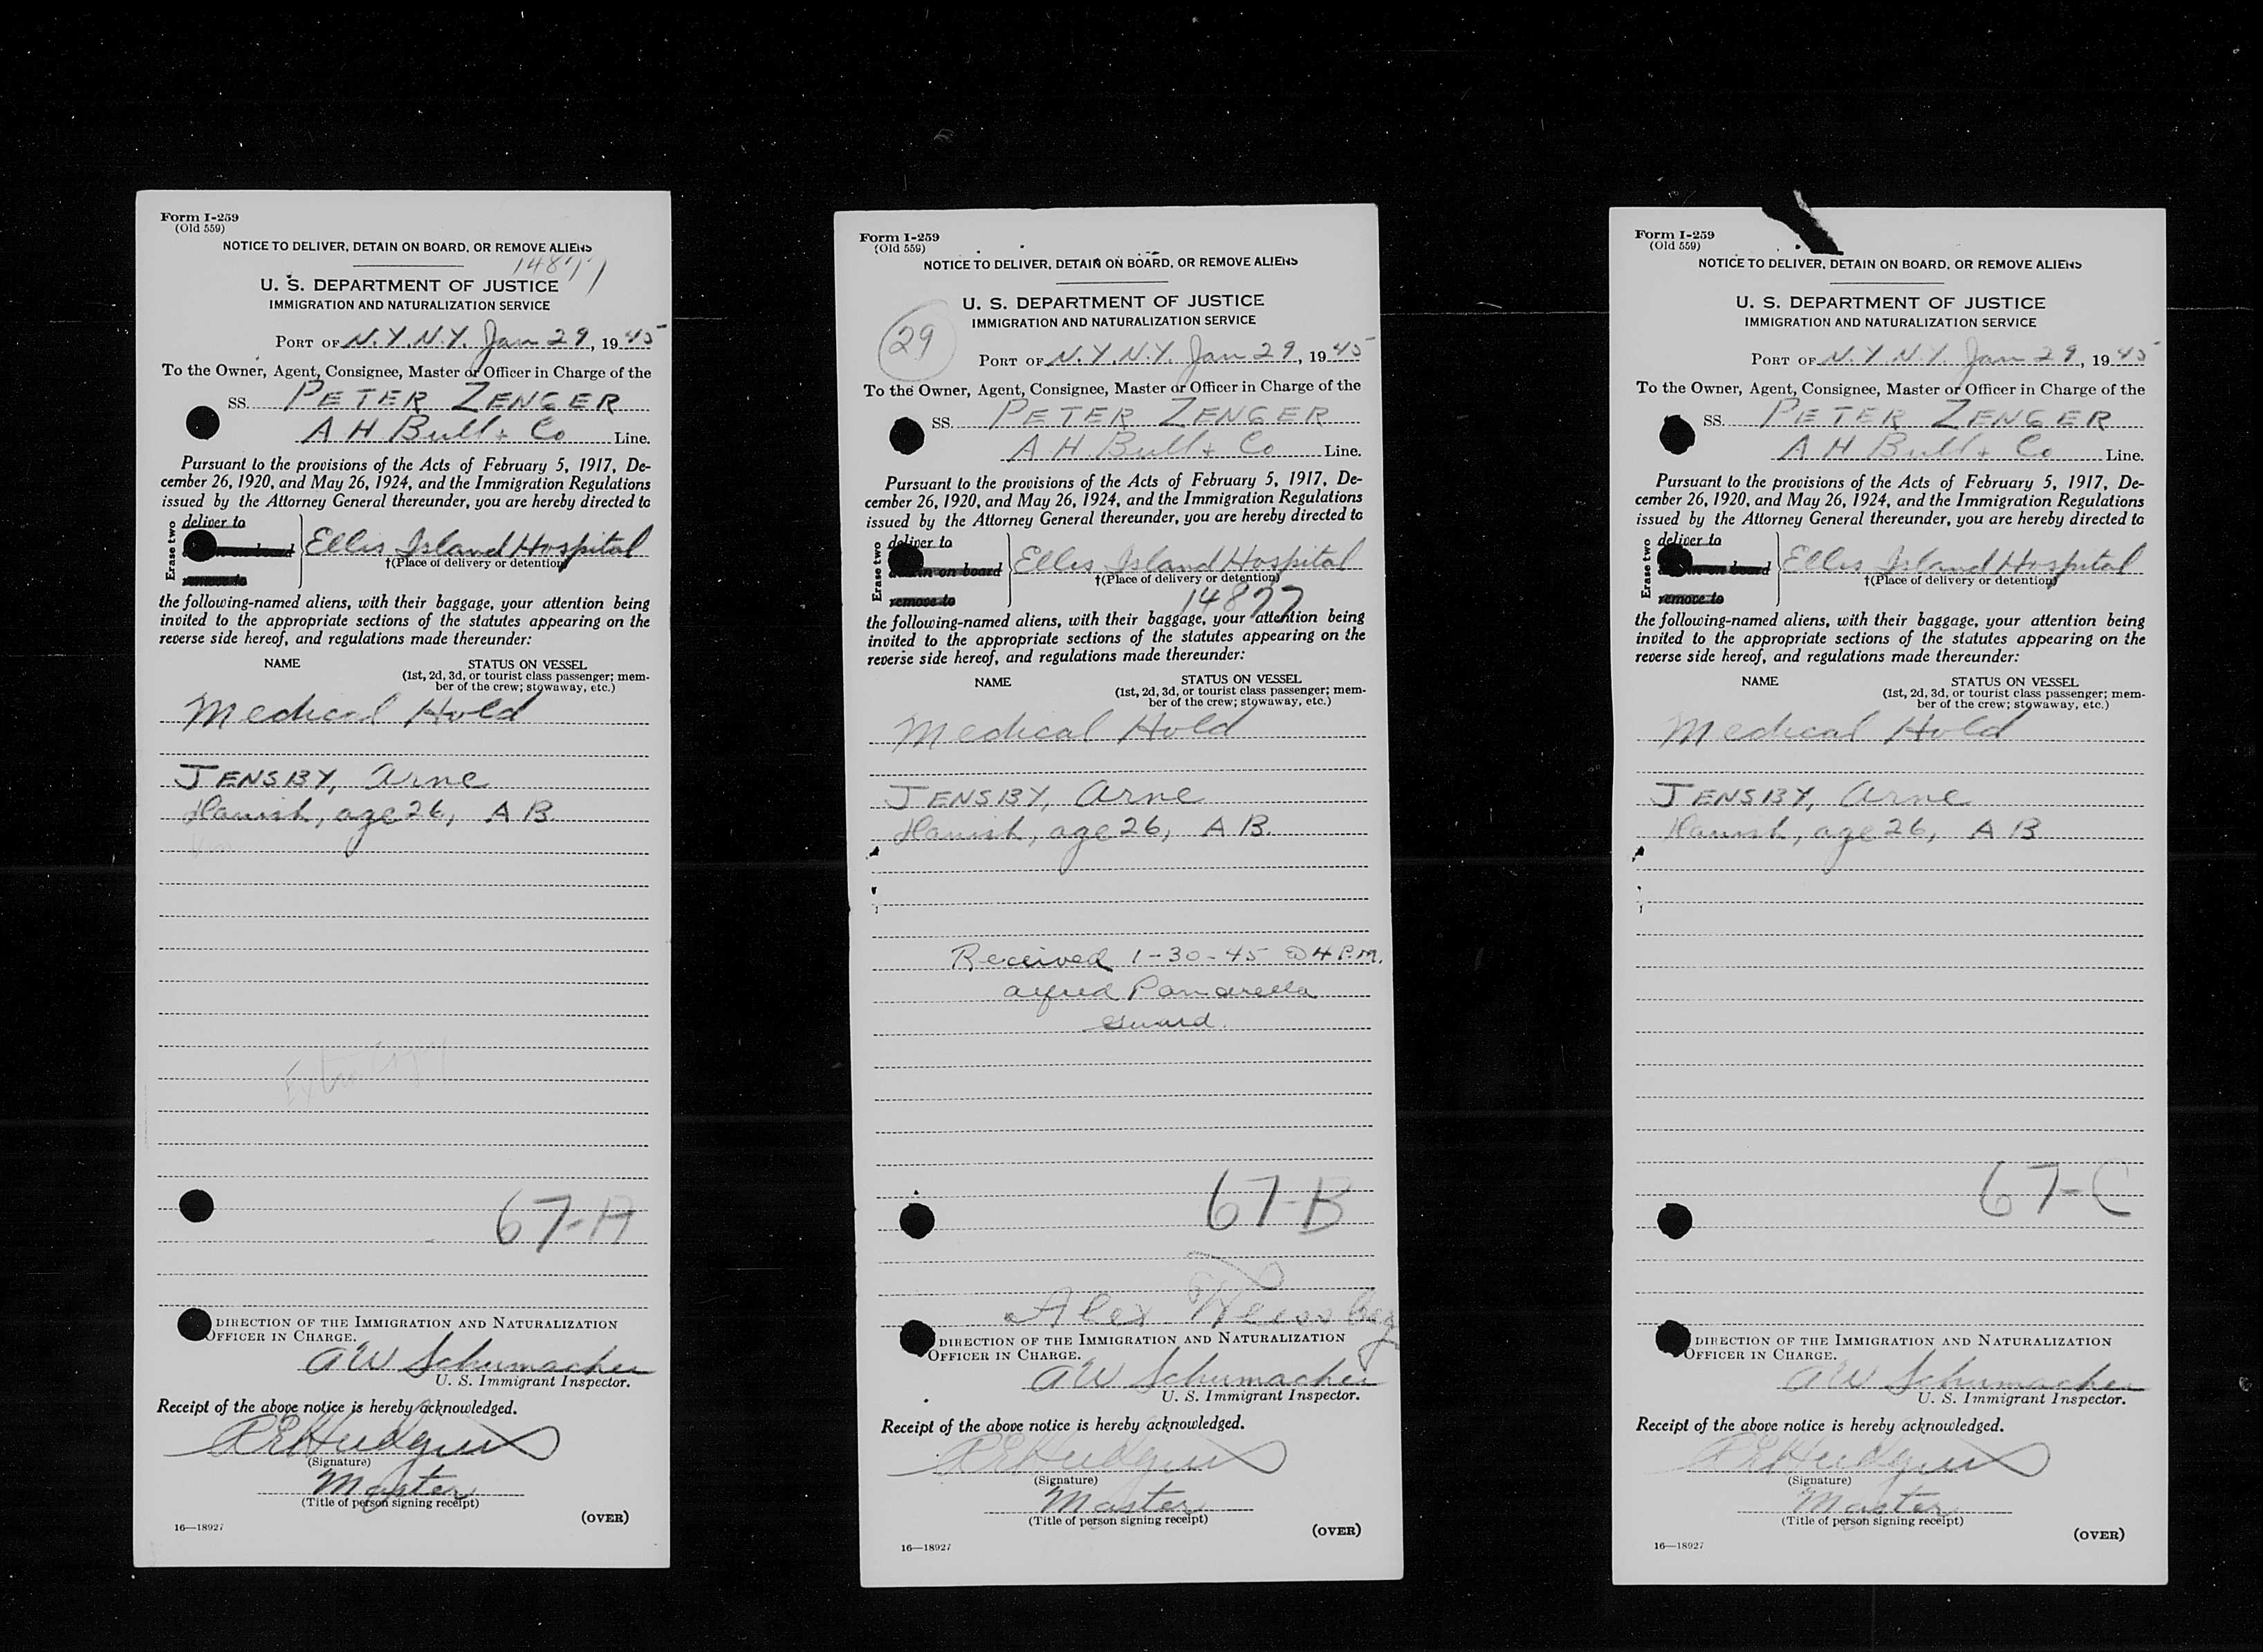 Form I-259
(Old 559)
NOTICE TO DELIVER, DETAIN ON BOARD, OR REMOVE ALIENS
14877
U. S. DEPARTMENT OF JUSTICE
IMMIGRATION AND NATURALIZATION SERVICE
PORT OF N.Y.N.Y. Jan 29, 1945
To the Owner, Agent, Consignee, Master or Officer in Charge of the
SS. PETER ZENGER
A H Bull + Co Line.
Pursuant to the provisions of the Acts of February 5, 1917, De-
cember 26, 1920, and May 26, 1924, and the Immigration Regulations
issued by the Attorney General thereunder, you are hereby directed to
Erase two
deliver to
board
remove to
Ellis Island Hospital
†(Place of delivery or detention)
the following-named aliens, with their baggage, your attention being
invited to the appropriate sections of the statutes appearing on the
reverse side hereof, and regulations made thereunder:
NAME STATUS ON VESSEL
(1st, 2d, 3d, or tourist class passenger; mem-
ber of the crew; stowaway, etc.)
Medical Hold
JENSBY, Arne
Danish, age 26, A B.
Extra Copy
67-A
DIRECTION OF THE IMMIGRATION AND NATURALIZATION
OFFICER IN CHARGE.
AW Schumacher
U. S. Immigrant Inspector.
Receipt of the above notice is hereby acknowledged.
RE Hudgins
(Signature)
Master
(Title of person signing receipt)
(OVER)
16—18927
Form I-259
(Old 559)
NOTICE TO DELIVER, DETAIN ON BOARD, OR REMOVE ALIENS
U. S. DEPARTMENT OF JUSTICE
IMMIGRATION AND NATURALIZATION SERVICE
29
PORT OF N.Y.N.Y. Jan 29, 1945
To the Owner, Agent, Consignee, Master or Officer in Charge of the
SS. PETER ZENGER
A H Bull + Co Line.
Pursuant to the provisions of the Acts of February 5, 1917, De-
cember 26, 1920, and May 26, 1924, and the Immigration Regulations
issued by the Attorney General thereunder, you are hereby directed to
Erase two
deliver to
on board
remove to
Ellis Island Hospital
†(Place of delivery or detention)
14877
the following-named aliens, with their baggage, your attention being
invited to the appropriate sections of the statutes appearing on the
reverse side hereof, and regulations made thereunder:
NAME STATUS ON VESSEL
(1st, 2d, 3d, or tourist class passenger; mem-
ber of the crew; stowaway, etc.)
Medical Hold
JENSBY, Arne
Danish, age 26, A B.
Received 1-30-45 @ 4 P.M.
Alfred
Guard.
67-B
Alex Weissberg
DIRECTION OF THE IMMIGRATION AND NATURALIZATION
OFFICER IN CHARGE.
AW Schumacher
U. S. Immigrant Inspector.
Receipt of the above notice is hereby acknowledged.
RE Hudgins
(Signature)
Master
(Title of person signing receipt)
(OVER)
16—18927
Form I-259
(Old 559)
NOTICE TO DELIVER, DETAIN ON BOARD, OR REMOVE ALIENS
U. S. DEPARTMENT OF JUSTICE
IMMIGRATION AND NATURALIZATION SERVICE
PORT OF N.Y.N.Y. Jan 29, 1945
To the Owner, Agent, Consignee, Master or Officer in Charge of the
SS. PETER ZENGER
A H Bull + Co Line.
Pursuant to the provisions of the Acts of February 5, 1917, De-
cember 26, 1920, and May 26, 1924, and the Immigration Regulations
issued by the Attorney General thereunder, you are hereby directed to
Erase two
deliver to
on board
remove to
Ellis Island Hospital
†(Place of delivery or detention)
the following-named aliens, with their baggage, your attention being
invited to the appropriate sections of the statutes appearing on the
reverse side hereof, and regulations made thereunder:
NAME STATUS ON VESSEL
(1st, 2d, 3d, or tourist class passenger; mem-
ber of the crew; stowaway, etc.)
Medical Hold
JENSBY, Arne
Danish, age 26, A B
67-C
DIRECTION OF THE IMMIGRATION AND NATURALIZATION
OFFICER IN CHARGE.
AW Schumacher
U. S. Immigrant Inspector.
Receipt of the above notice is hereby acknowledged.
RE Hudgins
(Signature)
Master
(Title of person signing receipt)
(OVER)
16—18927